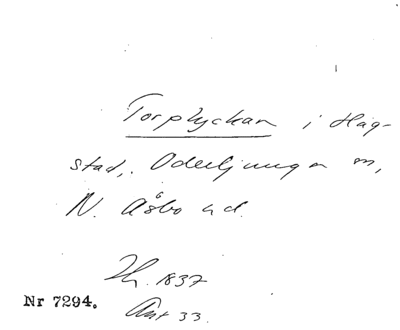 Torplyckan i Hag-
stad, Oderljunga sn,
N. Åsbo hd.
Th. 1837
Nr 7294.
Ant 33.